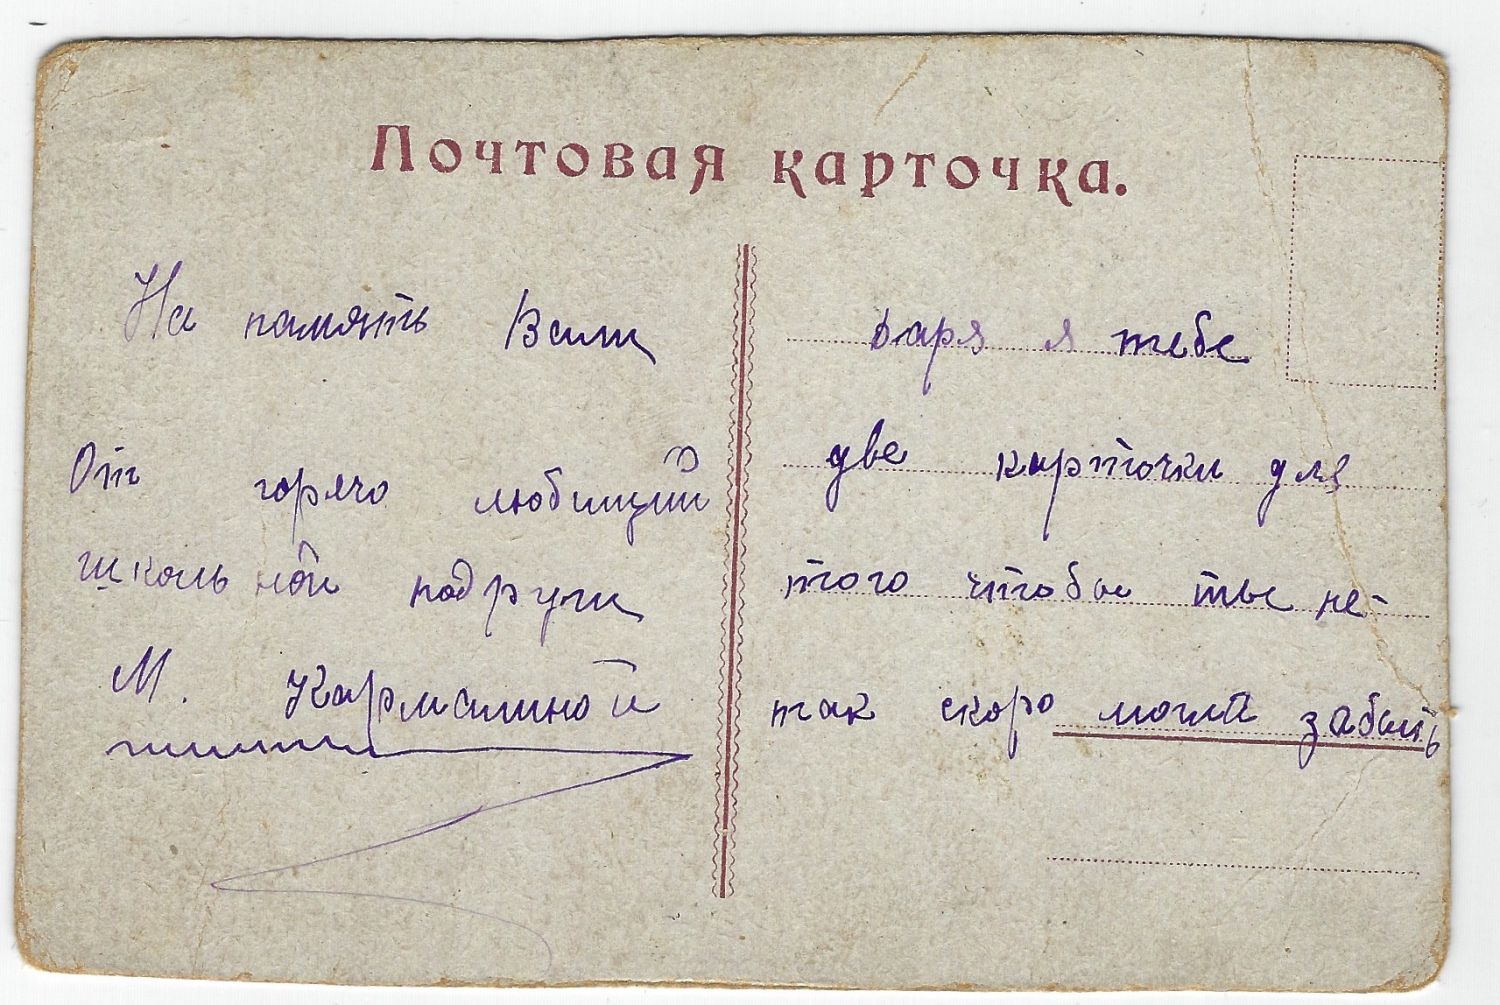 Почтовая карточка.
На память Вали
От горячо любищий
школьной подруги
М. Кармалиной
Даря я тебе
две карточки для
того чтобы ты не
так скоро могла забыть